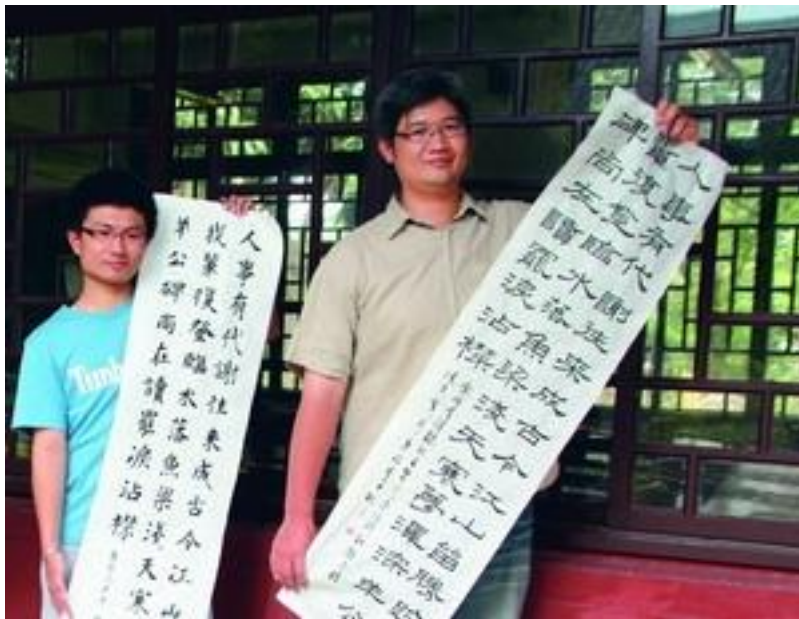 人事有代謝往來成古今江山
我輩復登臨水落魚梁淺天寒
羊公碑尚在讀罷淚沾襟
Timb
人事有代謝往來成古今江山留勝跡
輩復登臨水落魚梁淺天寒夢澤深羊公
碑尚在讀罷淚沾襟